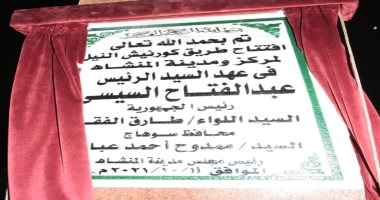 تم بحمد الله تعالى
افتتاح طريق كورنيش النيل
لمركز ومدينة المنشاه
فى عهد السيد الرئيس
عبدالفتاح السيسى
رئيس الجمهورية
السيد اللواء/ طارق الفق
محافظ سوهاج
السيد/ ممدوح أحمد عبا
رئيس مجلس مدينة المنشاه
الموافق / ١٠ / ٢٠٢١م